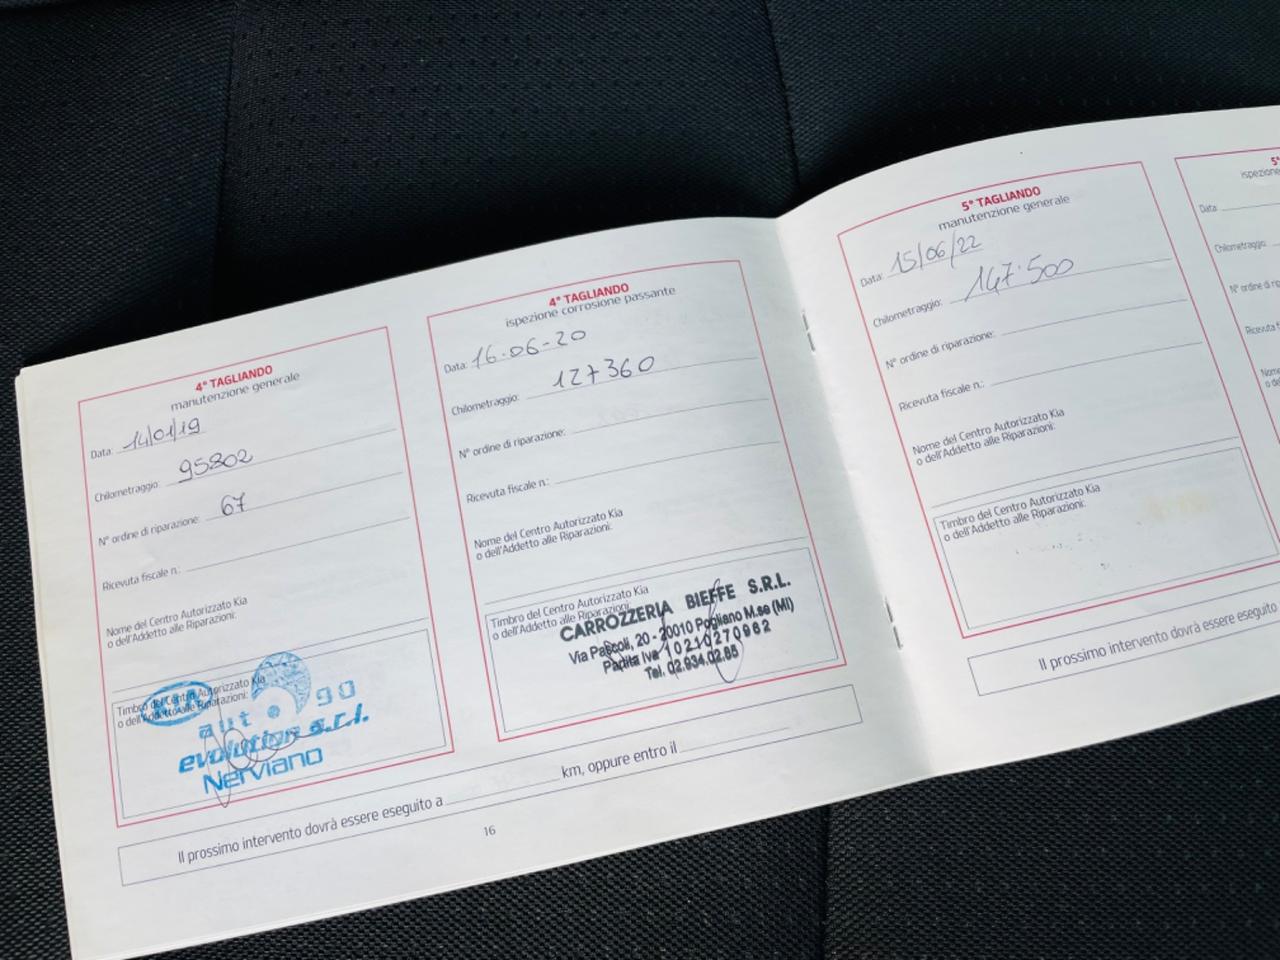 4° TAGLIANDO
manutenzione generale
Data: 14/01/19
Chilometraggio: 95802
N° ordine di riparazione: 67
Ricevuta fiscale n.:
Nome del Centro Autorizzato Kia
o dell'Addetto alle Riparazioni:
Timbro del Centro Autorizzato Kia
o dell'Addetto alle Riparazioni:
auto 90
evolution s.r.l.
Nerviano
4° TAGLIANDO
ispezione corrosione passante
Data: 16-06-20
Chilometraggio: 127360
N° ordine di riparazione:
Ricevuta fiscale n.:
Nome del Centro Autorizzato Kia
o dell'Addetto alle Riparazioni:
Timbro del Centro Autorizzato Kia
o dell'Addetto alle Riparazioni:
CARROZZERIA BIEFFE S.R.L.
Via Pascoli, 20 - 20010 Pogliano M.se (MI)
Partita Iva 10210270962
Tel. 02.934.02.65
Il prossimo intervento dovrà essere eseguito a km, oppure entro il
16
5° TAGLIANDO
manutenzione generale
Data: 15/06/22
Chilometraggio: 147.500
N° ordine di riparazione:
Ricevuta fiscale n.:
Nome del Centro Autorizzato Kia
o dell'Addetto alle Riparazioni:
Timbro del Centro Autorizzato Kia
o dell'Addetto alle Riparazioni:
Il prossimo intervento dovrà essere eseguito
5°
ispezione
Data:
Chilometraggio:
N° ordine di
Ricevuta